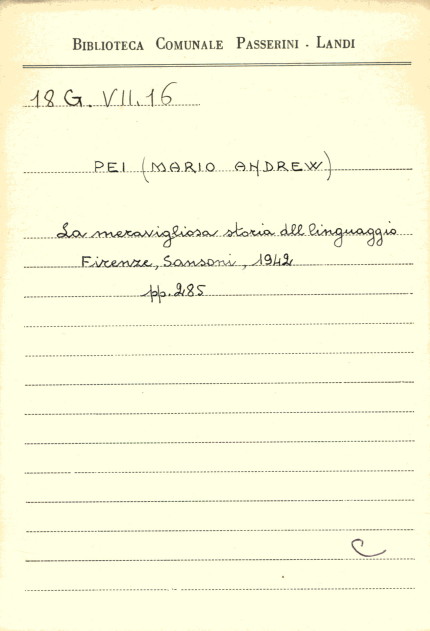 BIBLIOTECA COMUNALE PASSERINI - LANDI
18 G. VII. 16
PEI (MARIO ANDREW)
La meravigliosa storia dll linguaggio
Firenze, Sansoni, 1942
pp. 285
C